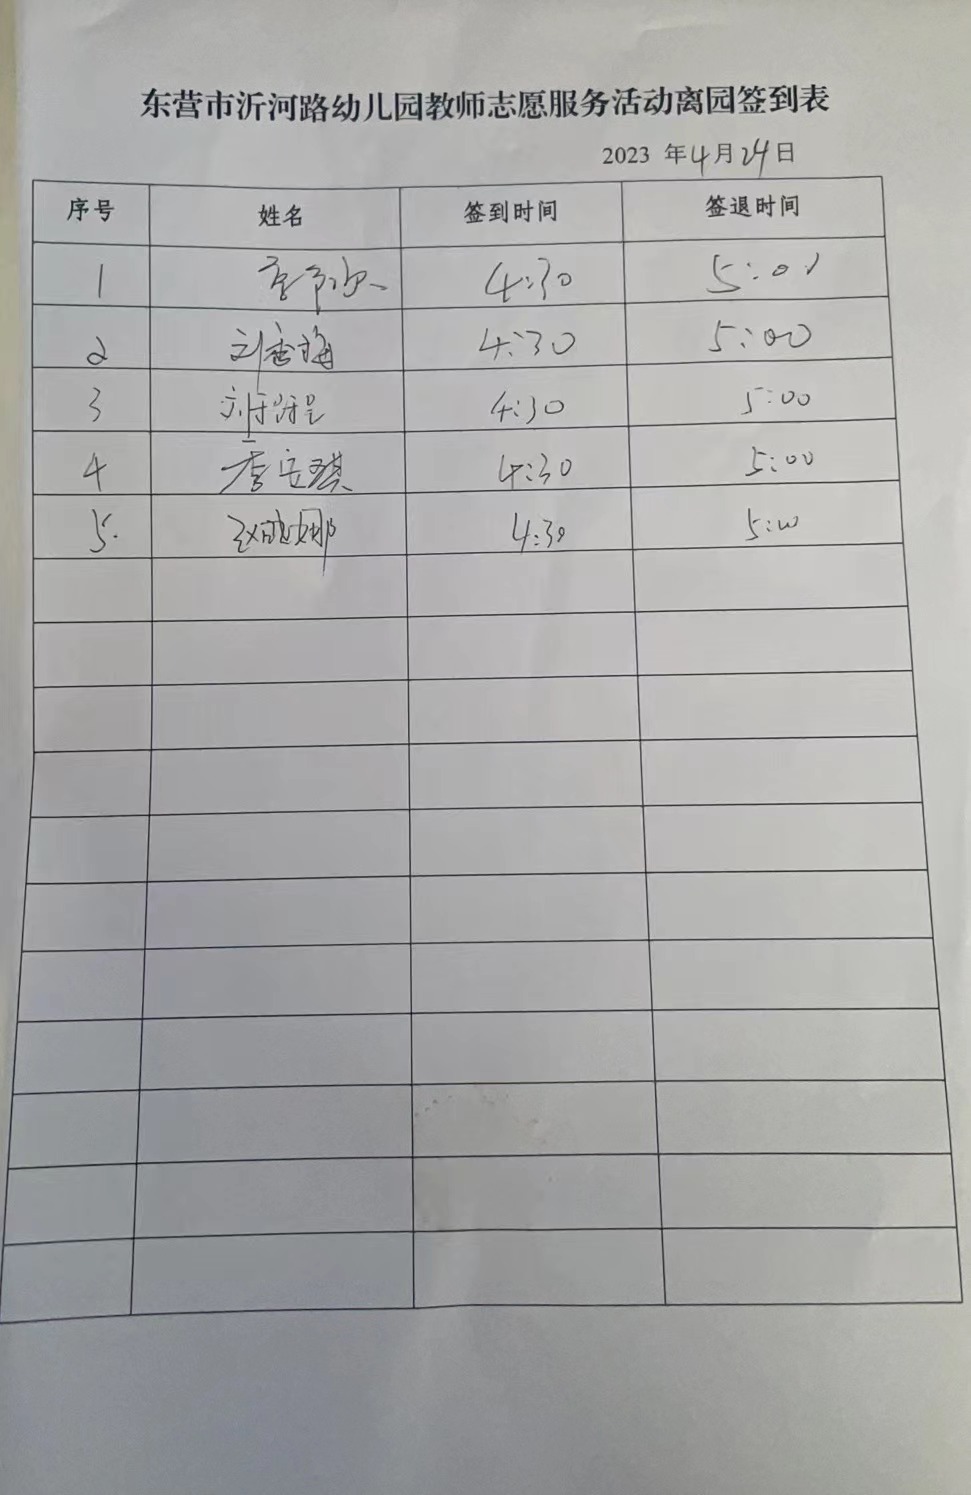 东营市沂河路幼儿园教师志愿服务活动离园签到表
2023 年4月24日
序号 姓名 签到时间 签退时间
1 4:30 5:01
2 刘香梅 4:30 5:00
3 4:30 5:00
4 李安琪 4:30 5:00
5. 赵晓娜 4:30 5:00